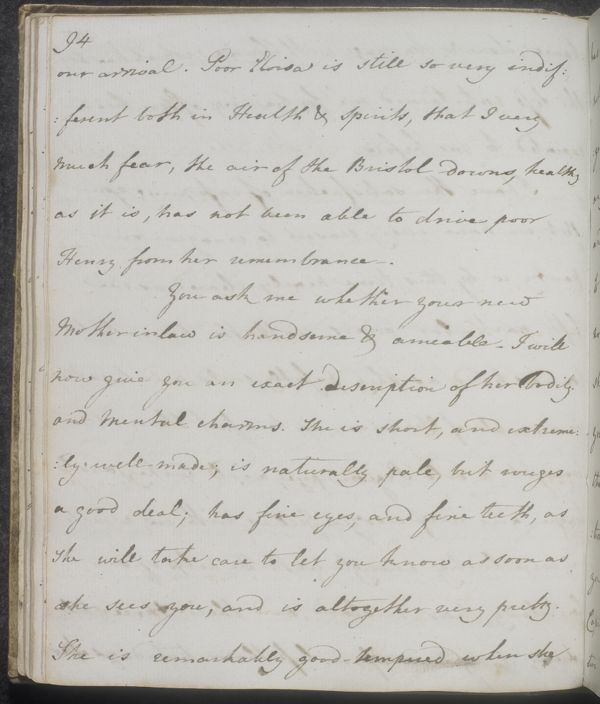 94
our arrival. Poor Eloisa is still so very indif:
:ferent both in Health & spirits, that I very
much fear, the air of the Bristol downs, healthy
as it is, has not been able to drive poor
Henry from her remembrance.
You ask me whether your new
Mother in law is handsome & amiable - I will
now give you an exact description of her bodily
and mental charms. She is short, and extreme:
:ly well-made; is naturally pale, but rouges
a good deal; has fine eyes, and fine teeth, as
she will take care to let you know as soon as
she sees you, and is altogether very pretty.
She is remarkably good-tempered when she